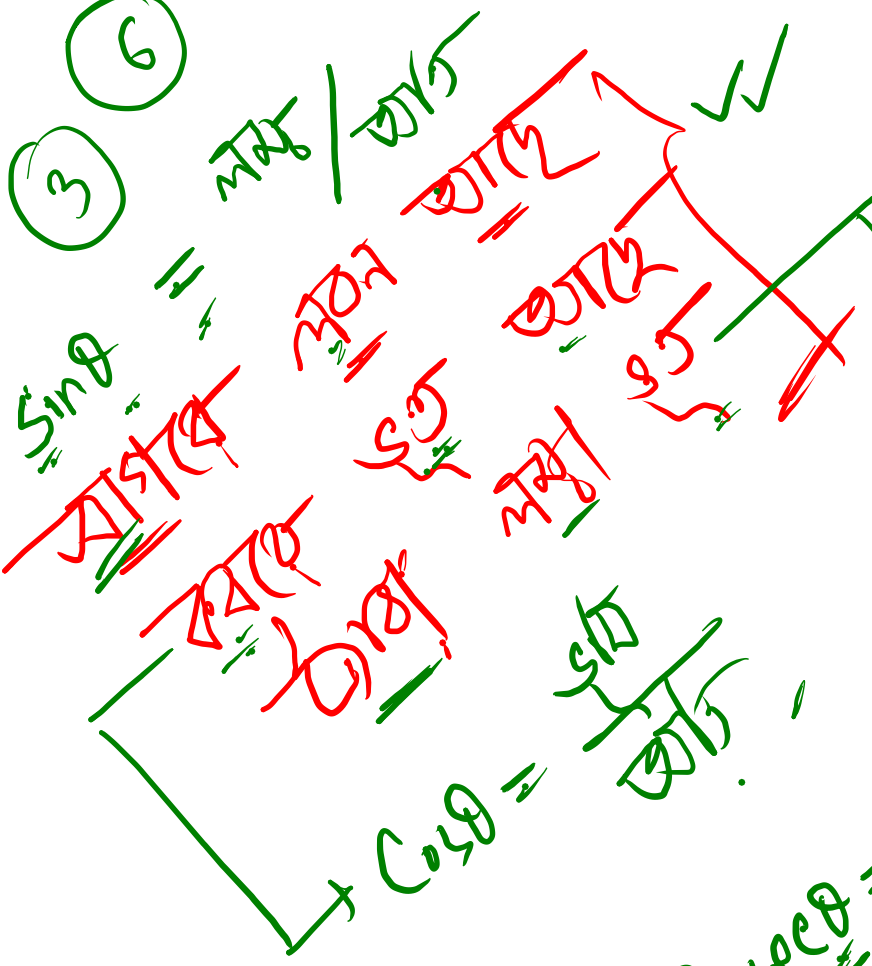 6
3
sinθ = লম্ব / অতি
সাগরে লবন আছে
কবরে ভূত আছে
ট্যারা লম্বা ভূত
cosθ = ভূমি / অতি
secθ =